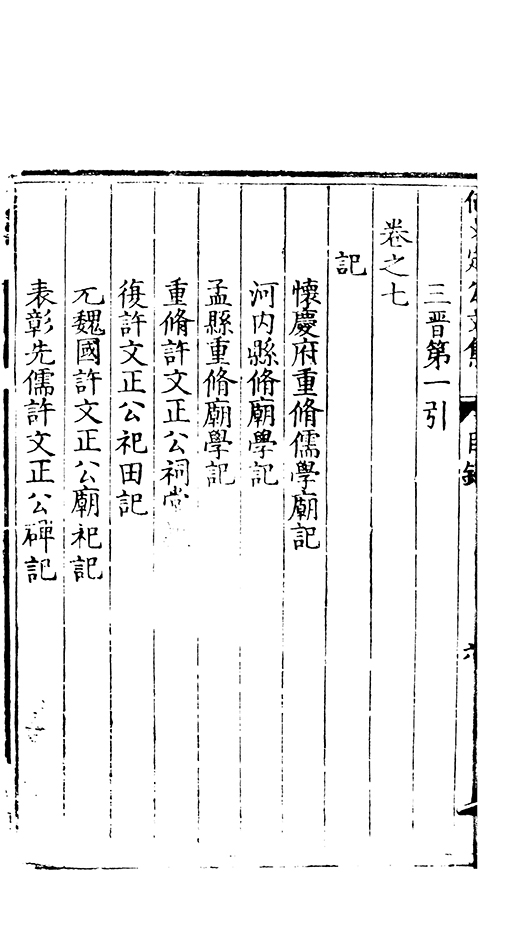 三晉第一引
卷之七
記
懷慶府重脩儒學廟記
河内縣脩廟學記
孟縣重脩廟學記
重脩許文正公祠堂
復許文正公祀田記
元魏國許文正公廟祀記
表彰先儒許文正公碑記